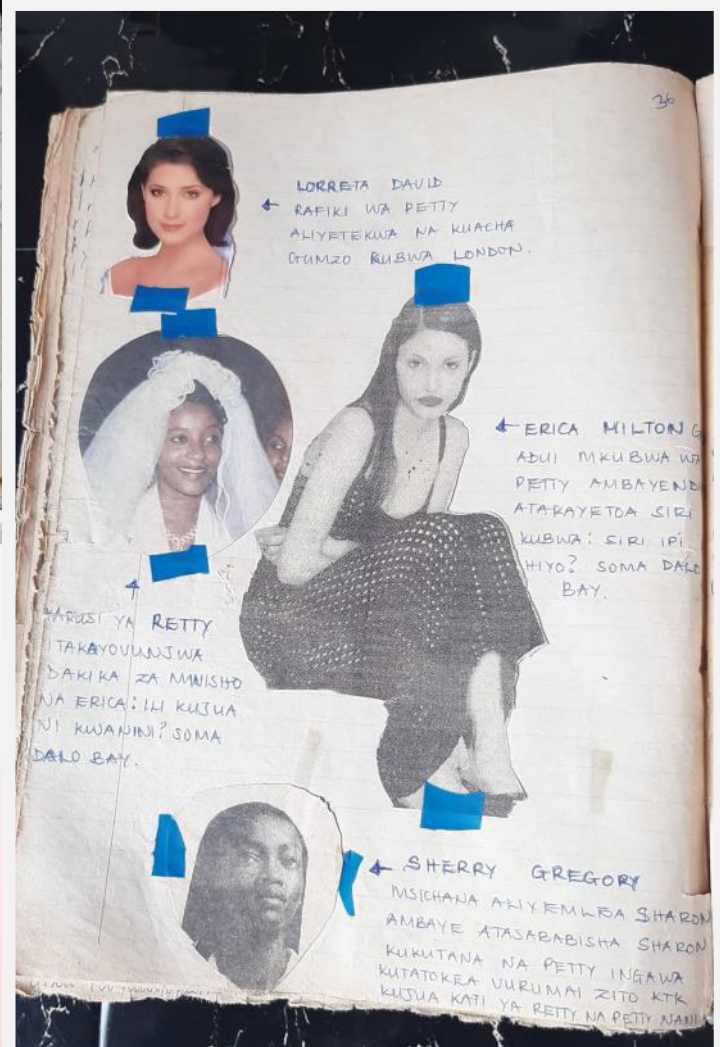 36
LORRETA DAVID
RAFIKI WA PETTY
ALIYETEKWA NA KUACHA
GUMZO KUBWA LONDON.
ERICA MILTON G
ADUI MKUBWA WA
PETTY AMBAYEND
ATAKAYETOA SIRI
KUBWA: SIRI IPI
HIYO? SOMA DALO
BAY.
HARUSI YA RETTY
ITAKAYOVUNJWA
DAKIKA ZA MWISHO
NA ERICA: ILI KUJUA
NI KWANINI? SOMA
DALO BAY.
SHERRY GREGORY
MSICHANA ALIYEMLEA SHARON
AMBAYE ATASABABISHA SHARON
KUKUTANA NA PETTY INGAWA
KUTATOKEA VURUMAI ZITO KTK
KUJUA KATI YA RETTY NA PETTY NANI